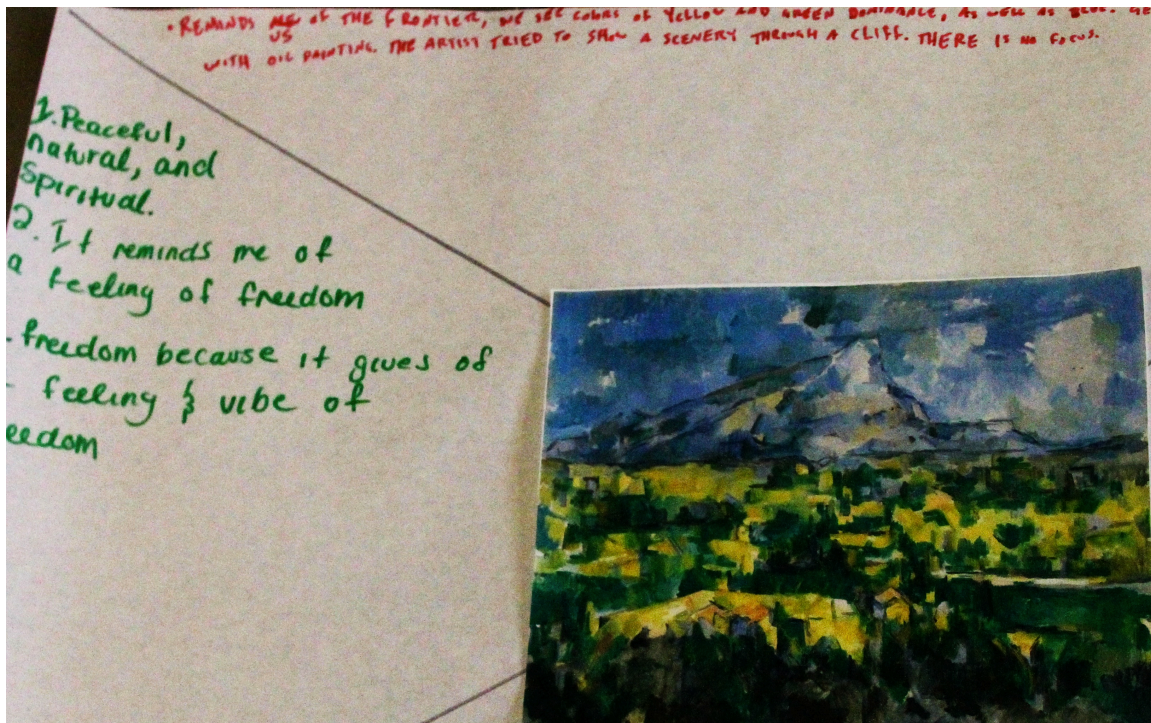 • REMINDS ME OF THE FRONTIER, WE SEE COLORS OF YELLOW AND GREEN DOMINANCE, AS WELL AS BLUE.
US
WITH OIL PAINTING. THE ARTIST TRIED TO SHOW A SCENERY THROUGH A CLIFF. THERE IS NO FOCUS.
1. Peaceful,
natural, and
Spiritual.
2. It reminds me of
a feeling of freedom
freedom because it gives of
feeling & vibe of
eedom